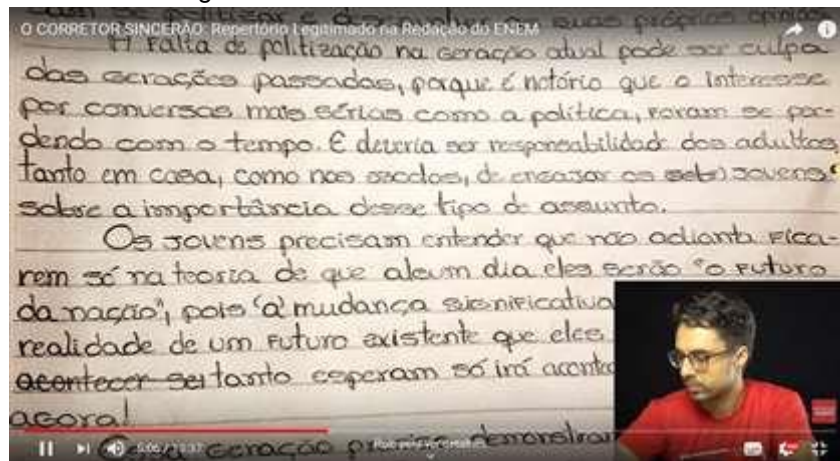 O CORRETOR SINCERÃO: Repertório Legitimado na Redação do ENEM
suas próprias
A falta de politização na geração atual pode ser culpa
das gerações passadas, porque é notório que o interesse
por conversas mais sérias como a política, foram se per-
dendo com o tempo. E deveria ser responsabilidade dos adultos
tanto em casa, como nas escolas, de engajar os jovens
sobre a importância desse tipo de assunto.
Os jovens precisam entender que não adianta fica-
rem só na teoria de que algum dia eles serão "o futuro
da nação", pois "a" mudança significativa
realidade de um futuro existente que eles
acontecer tanto esperam só irá
agora!
5:06 / 10:37
geração